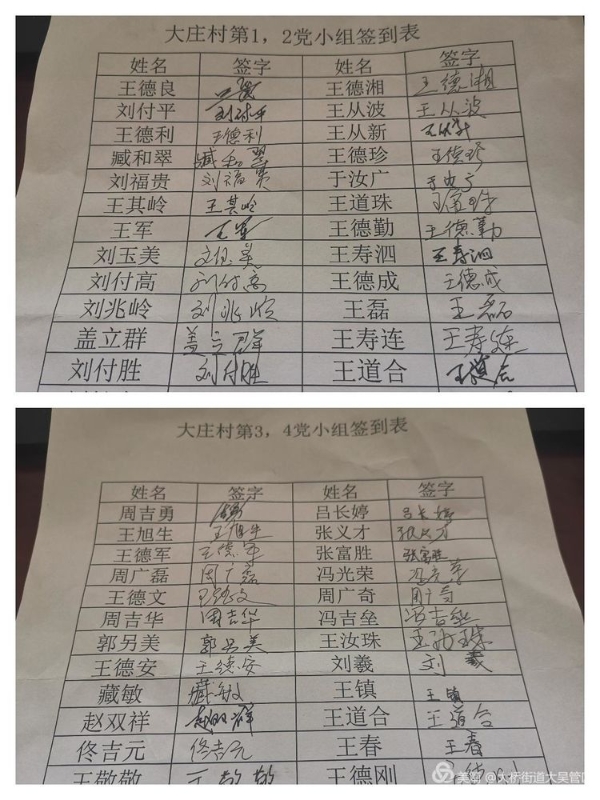 大庄村第1，2党小组签到表
姓名 签字 姓名 签字
王德良 王德湘 王德湘
刘付平 刘付平 王从波 王从波
王德利 王德利 王从新 王从新
臧和翠 臧和翠 王德珍 王德珍
刘福贵 刘福贵 于汝广
王其岭 王其岭 王道珠
王军 王军 王德勤 王德勤
刘玉美 王寿泗 王寿泗
刘付高 刘付高 王德成 王德成
刘兆岭 刘兆岭 王磊 王磊
盖立群 盖立群 王寿连 王寿连
刘付胜 刘付胜 王道合 王道合
大庄村第3，4党小组签到表
姓名 签字 姓名 签字
周吉勇 吕长婷 吕长婷
王旭生 王旭生 张义才 张义才
王德军 王德军 张富胜 张富胜
周广磊 周广磊 冯光荣 冯光荣
王德文 王德文 周广奇 周广奇
周吉华 周吉华 冯吉垒 冯吉垒
郭另美 郭另美 王汝珠 王汝珠
王德安 王德安 刘羲 刘羲
藏敏 臧敏 王镇 王镇
赵双祥 赵双祥 王道合 王道合
佟吉元 佟吉元 王春 王春
王敬敬 王敬敬 王德刚
美篇 @大桥街道大吴管区